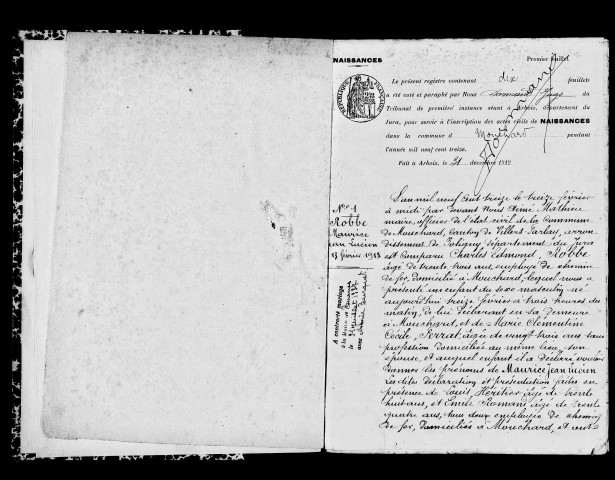 NAISSANCES
Premier feuillet.
Le présent registre contenant dix feuillets
a été coté et paraphé par Nous Juge du
Tribunal de première instance séant à Arbois, département du
Jura, pour servir à l'inscription des actes civils de NAISSANCES
dans la commune d Mouchard pendant
l'année mil neuf cent treize.
Fait à Arbois, le 21 décembre 1912
RÉPUBLIQUE FRANÇAISE
No 1
Robbe
Maurice
Jean Lucien
13 février 1913
A contracté mariage
à la Mairie de
le juillet 1937
avec
L'an mil neuf cent treize le treize février
à midi par devant Nous Aimé Mathieu
maire, officier de l'état civil de la Commune
de Mouchard, Canton de Villers Farlay, arron
dissement de Poligny département du Jura
est comparu Charles Edmond, Robbe
âgé de trente trois ans, employé de chemin
de fer, domicilié à Mouchard, lequel nous a
présenté un enfant du sexe masculin né
aujourd'hui treize février à trois heures du
matin, de lui déclarant en sa demeure
à Mouchard, et de Marie Clémentine
Cécile, Perrat, âgée de vingt trois ans sans
profession domiciliée au même lieu, son
épouse, et auquel enfant il a déclaré vouloir
donner les prénoms de Maurice Jean Lucien
Les dites déclaration et présentation faites en
présence de Louis, Héritier âgé de trente
huit ans, et Emile Romand âgé de trente
quatre ans, tous deux employés de chemin
de fer, domiciliés à Mouchard, et ont